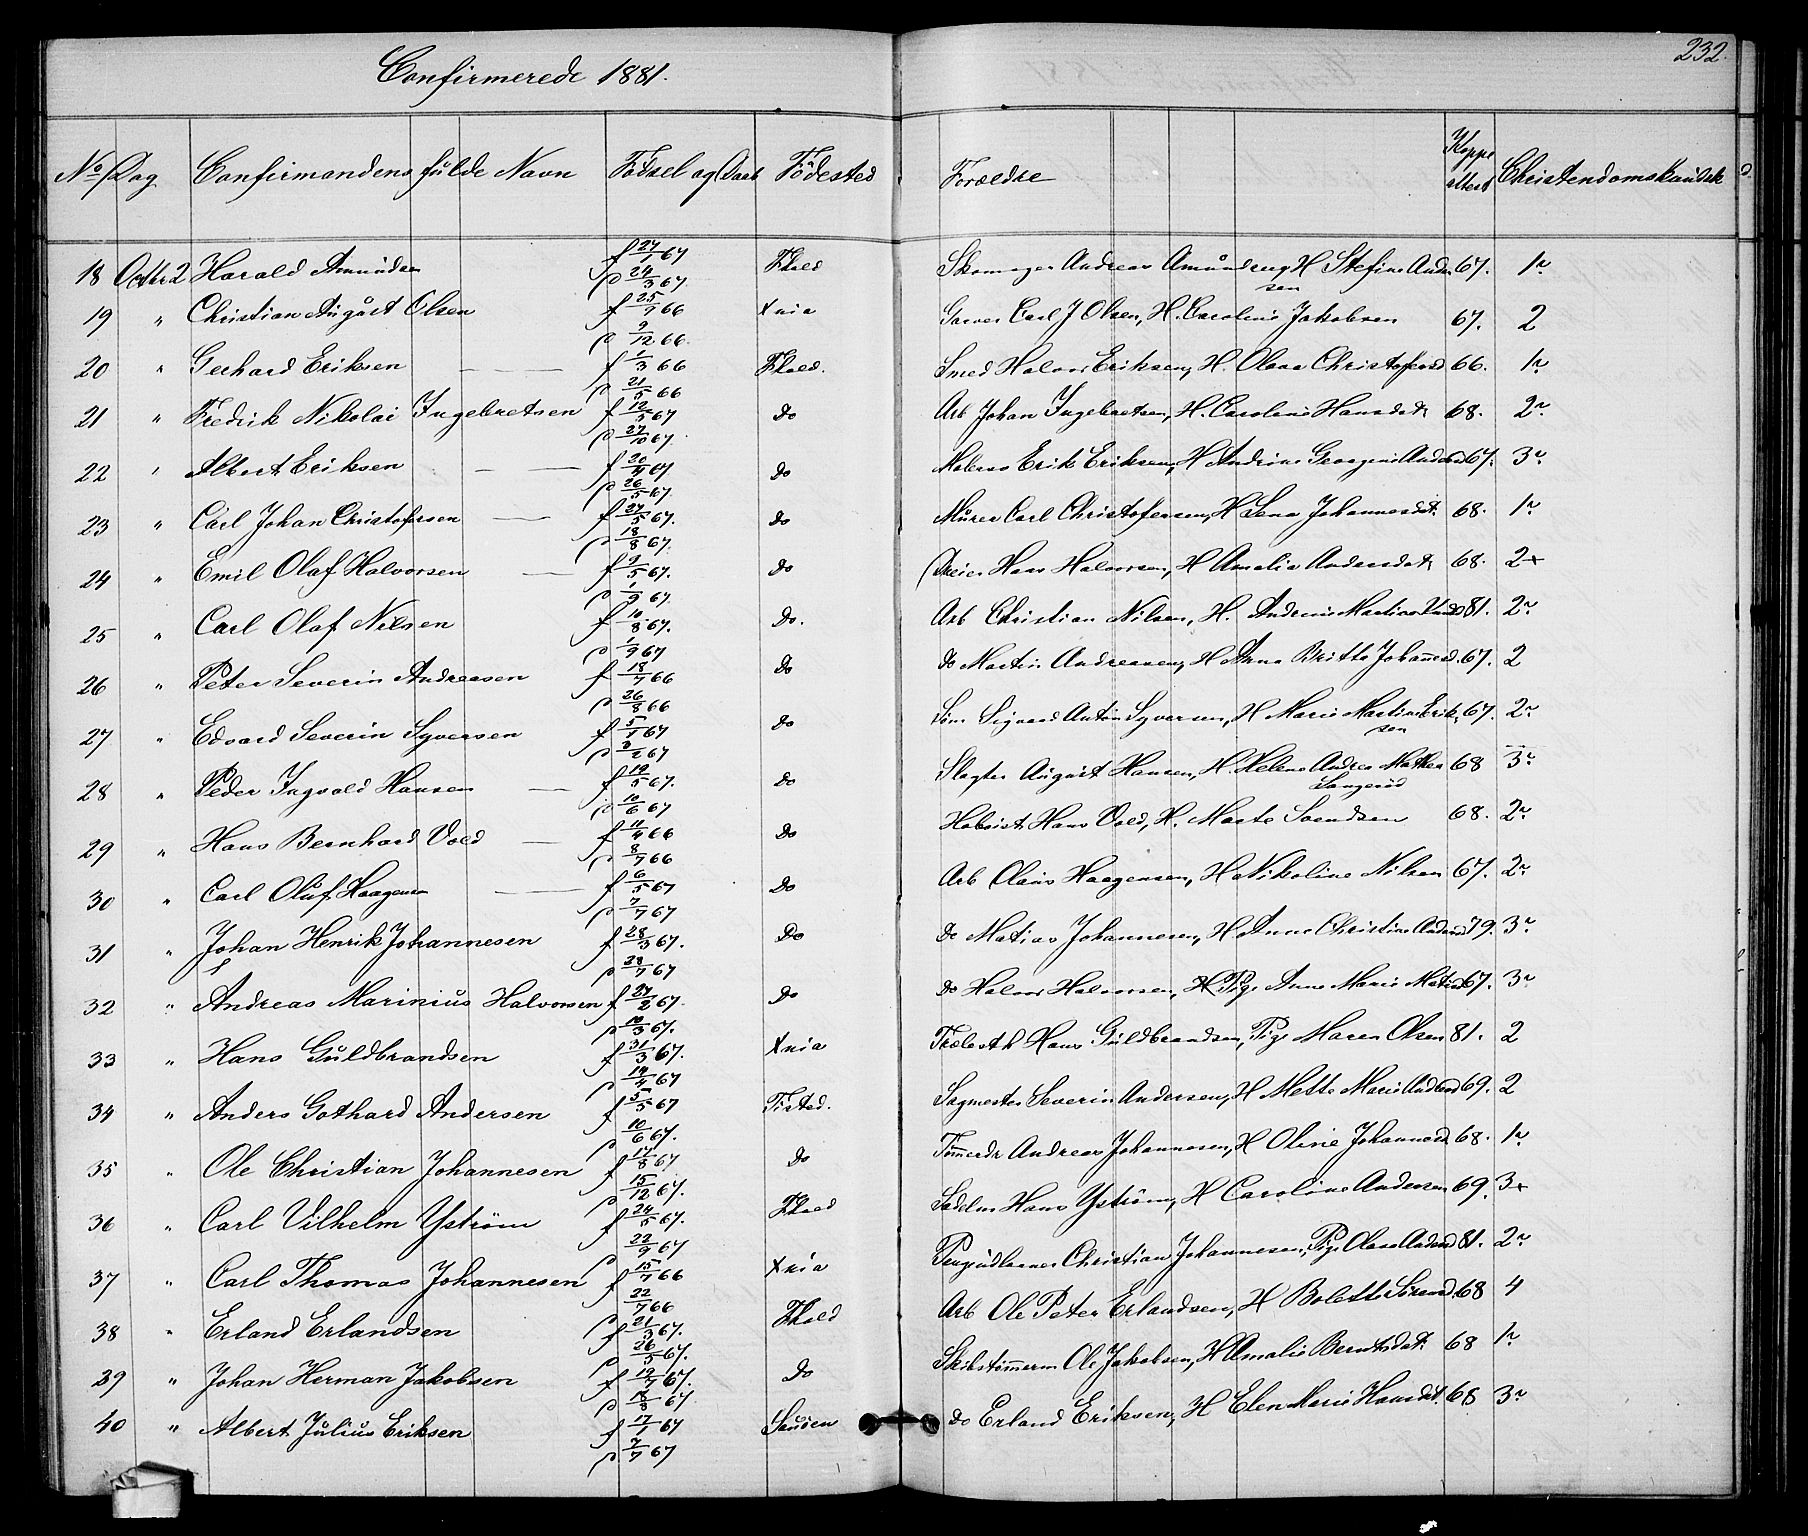 232.
Confirmerede 1881.
No Dag Confirmandens fulde Navn Fødsel og Daab Fødested Forældre Koppe attest Christendomskundsk
18 Octbr 2 Harald Amundsen f 27/1 67 p 24/3 67 Fhald Skomager Andreas Amundsen, H Stefine Ander 67. 1r
sen
19 " Christian August Olsen f 25/7 66 p 9/12 66 Xnia Garver Carl J Olsen, H. Caroline Jakobsen 67. 2
20 " Gerhard Eriksen f 1/3 66 p 21/5 66 Fhald. Smed Halvor Eriksen, H. Olava Christofersd 66. 1r
21 " Fredrik Nikolai Ingebretsen f 12/5 67 p 27/10 67. Do Arb Johan Ingebretsen, H. Caroline Hansdatr 68. 2r
22 " Albert Eriksen f 20/4 67 p 26/5 67. Do Erik Eriksen, H Andrine Georgine Andersd 67. 3r
23 " Carl Johan Christofersen f 27/5 67. p 18/8 67. Do Murer Carl Christofersen, H Lena Johannesdat. 68. 1r
24 " Emil Olaf Halvorsen f 9/5 67. p 1/9 67. Do Dreier Hans Halvorsen, H Amalia Andersdatr 68. 2+
25 " Carl Olaf Nilsen f 10/8 67. p 1/9 67 Do. Arb Christian Nilsen, H. Andrine Martine 81. 2r
26 " Peter Severin Andreasen f 18/7 66 p 26/8 66 Do Do Martin Andreasen, H Anna Britta Johannesd. 67. 2
27 " Edvard Severin Syversen f 5/1 67 p 3/2 67 Do Sigvard Anton Syversen, H Marie Martine Erik 67. 2r
sen
28 " Peder Ingvald Hansen f 19/5 67. p 10/6 67 Do Slagter August Hansen, H. Helene Andrea Mathea 68 3r
Langerød
29 " Hans Bernhard Vold f 11/4 66 p 8/7 66 Do Hans Vold, H. Marte Svendsen 68. 2r
30 " Carl Oluf Haagensen f 6/5 67 p 7/7 67 Do Arb Olaus Haagensen, H Nikoline Nilsen 67. 2r
31 " Johan Henrik Johannesen f 28/3 67. p 28/7 67 Do Do Matias Johannesen, H Anne Christine Andersd 79. 3r
32 " Andreas Marinius Halvorsen f 27/2 67. p 10/3 67. Do Do Halvor Halvorsen, Pige Anne Marie Matisd 67. 3r
33 " Hans Guldbrandsen f 31/3 67. p 14/4 67 Xnia Hans Guldbrandsen, Pige Maren Olsen 81. 2
34 " Anders Gothard Andersen f 5/5 67 p 10/6 67. Tisted. Sagmester Severin Andersen, H Mette Marie Andersd 69. 2
35 " Ole Christian Johannesen f 17/8 67 p 15/12 67. Do Tømmerdr Andreas Johannesen, H Oline Johannesd. 68. 1r
36 " Carl Vilhelm Ystrøm f 24/5 67. p 22/9 67 Fhald Sadelm Hans Ystrøm, H Caroline Andersen 69. 3+
37 " Carl Thomas Johannesen f 15/7 66 p 22/7 66 Xnia Christian Johannesen, Pige Olava Andersd 81. 2r
38 " Erland Erlandsen f 21/3 67. p 26/5 67. Fhald Arb Ole Peter Erlandsen, H Bolette Sørensd. 68 4
39 " Johan Herman Jakobsen f 19/7 67. p 18/8 67 Do Skibstømmerm Ole Jakobsen, H Amalie Berntsdat. 68 1r
40 " Albert Julius Eriksen f 17/1 67 p 7/7 67 Sarøen Do Erland Eriksen, H Elen Marie Hansdt. 68 3r